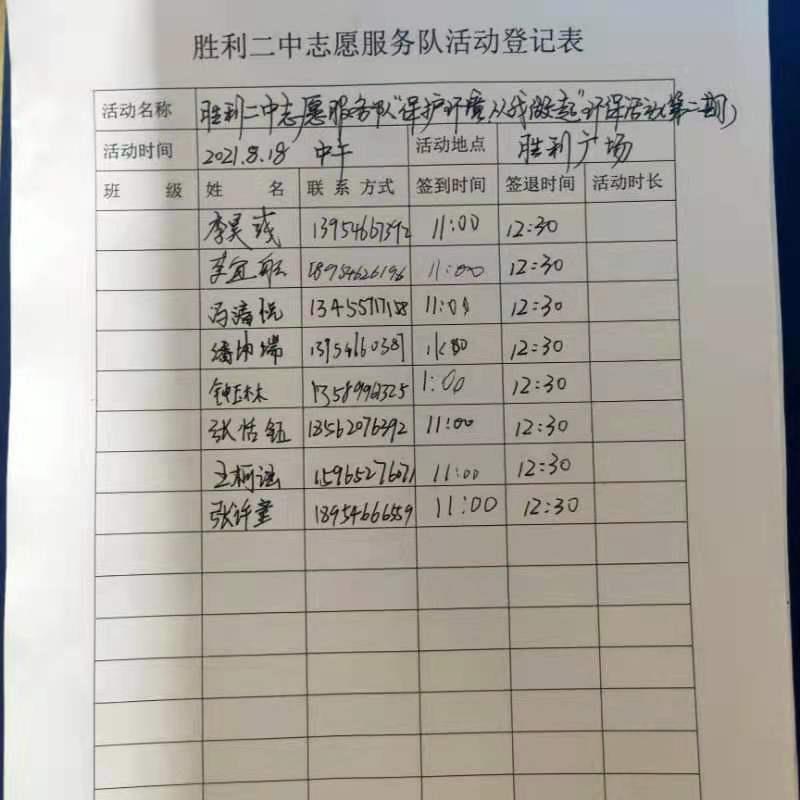 胜利二中志愿服务队活动登记表
活动名称 胜利二中志愿服务队"保护环境,从我做起"环保活动第二期)
活动时间 2021.8.18 中午 活动地点 胜利广场
班 级 姓 名 联 系 方式 签到时间 签退时间 活动时长
李昊彧 13954667392 11:00 12:30
李宜航 18954626196 11:00 12:30
冯潇悦 13455717158 11:00 12:30
12:30
钟 13589963325 1:00 12:30
张恬钰 13562076392 11:00 12:30
王柯涵 15965276071 11:00 12:30
张许堂 18954666559 11:00 12:30